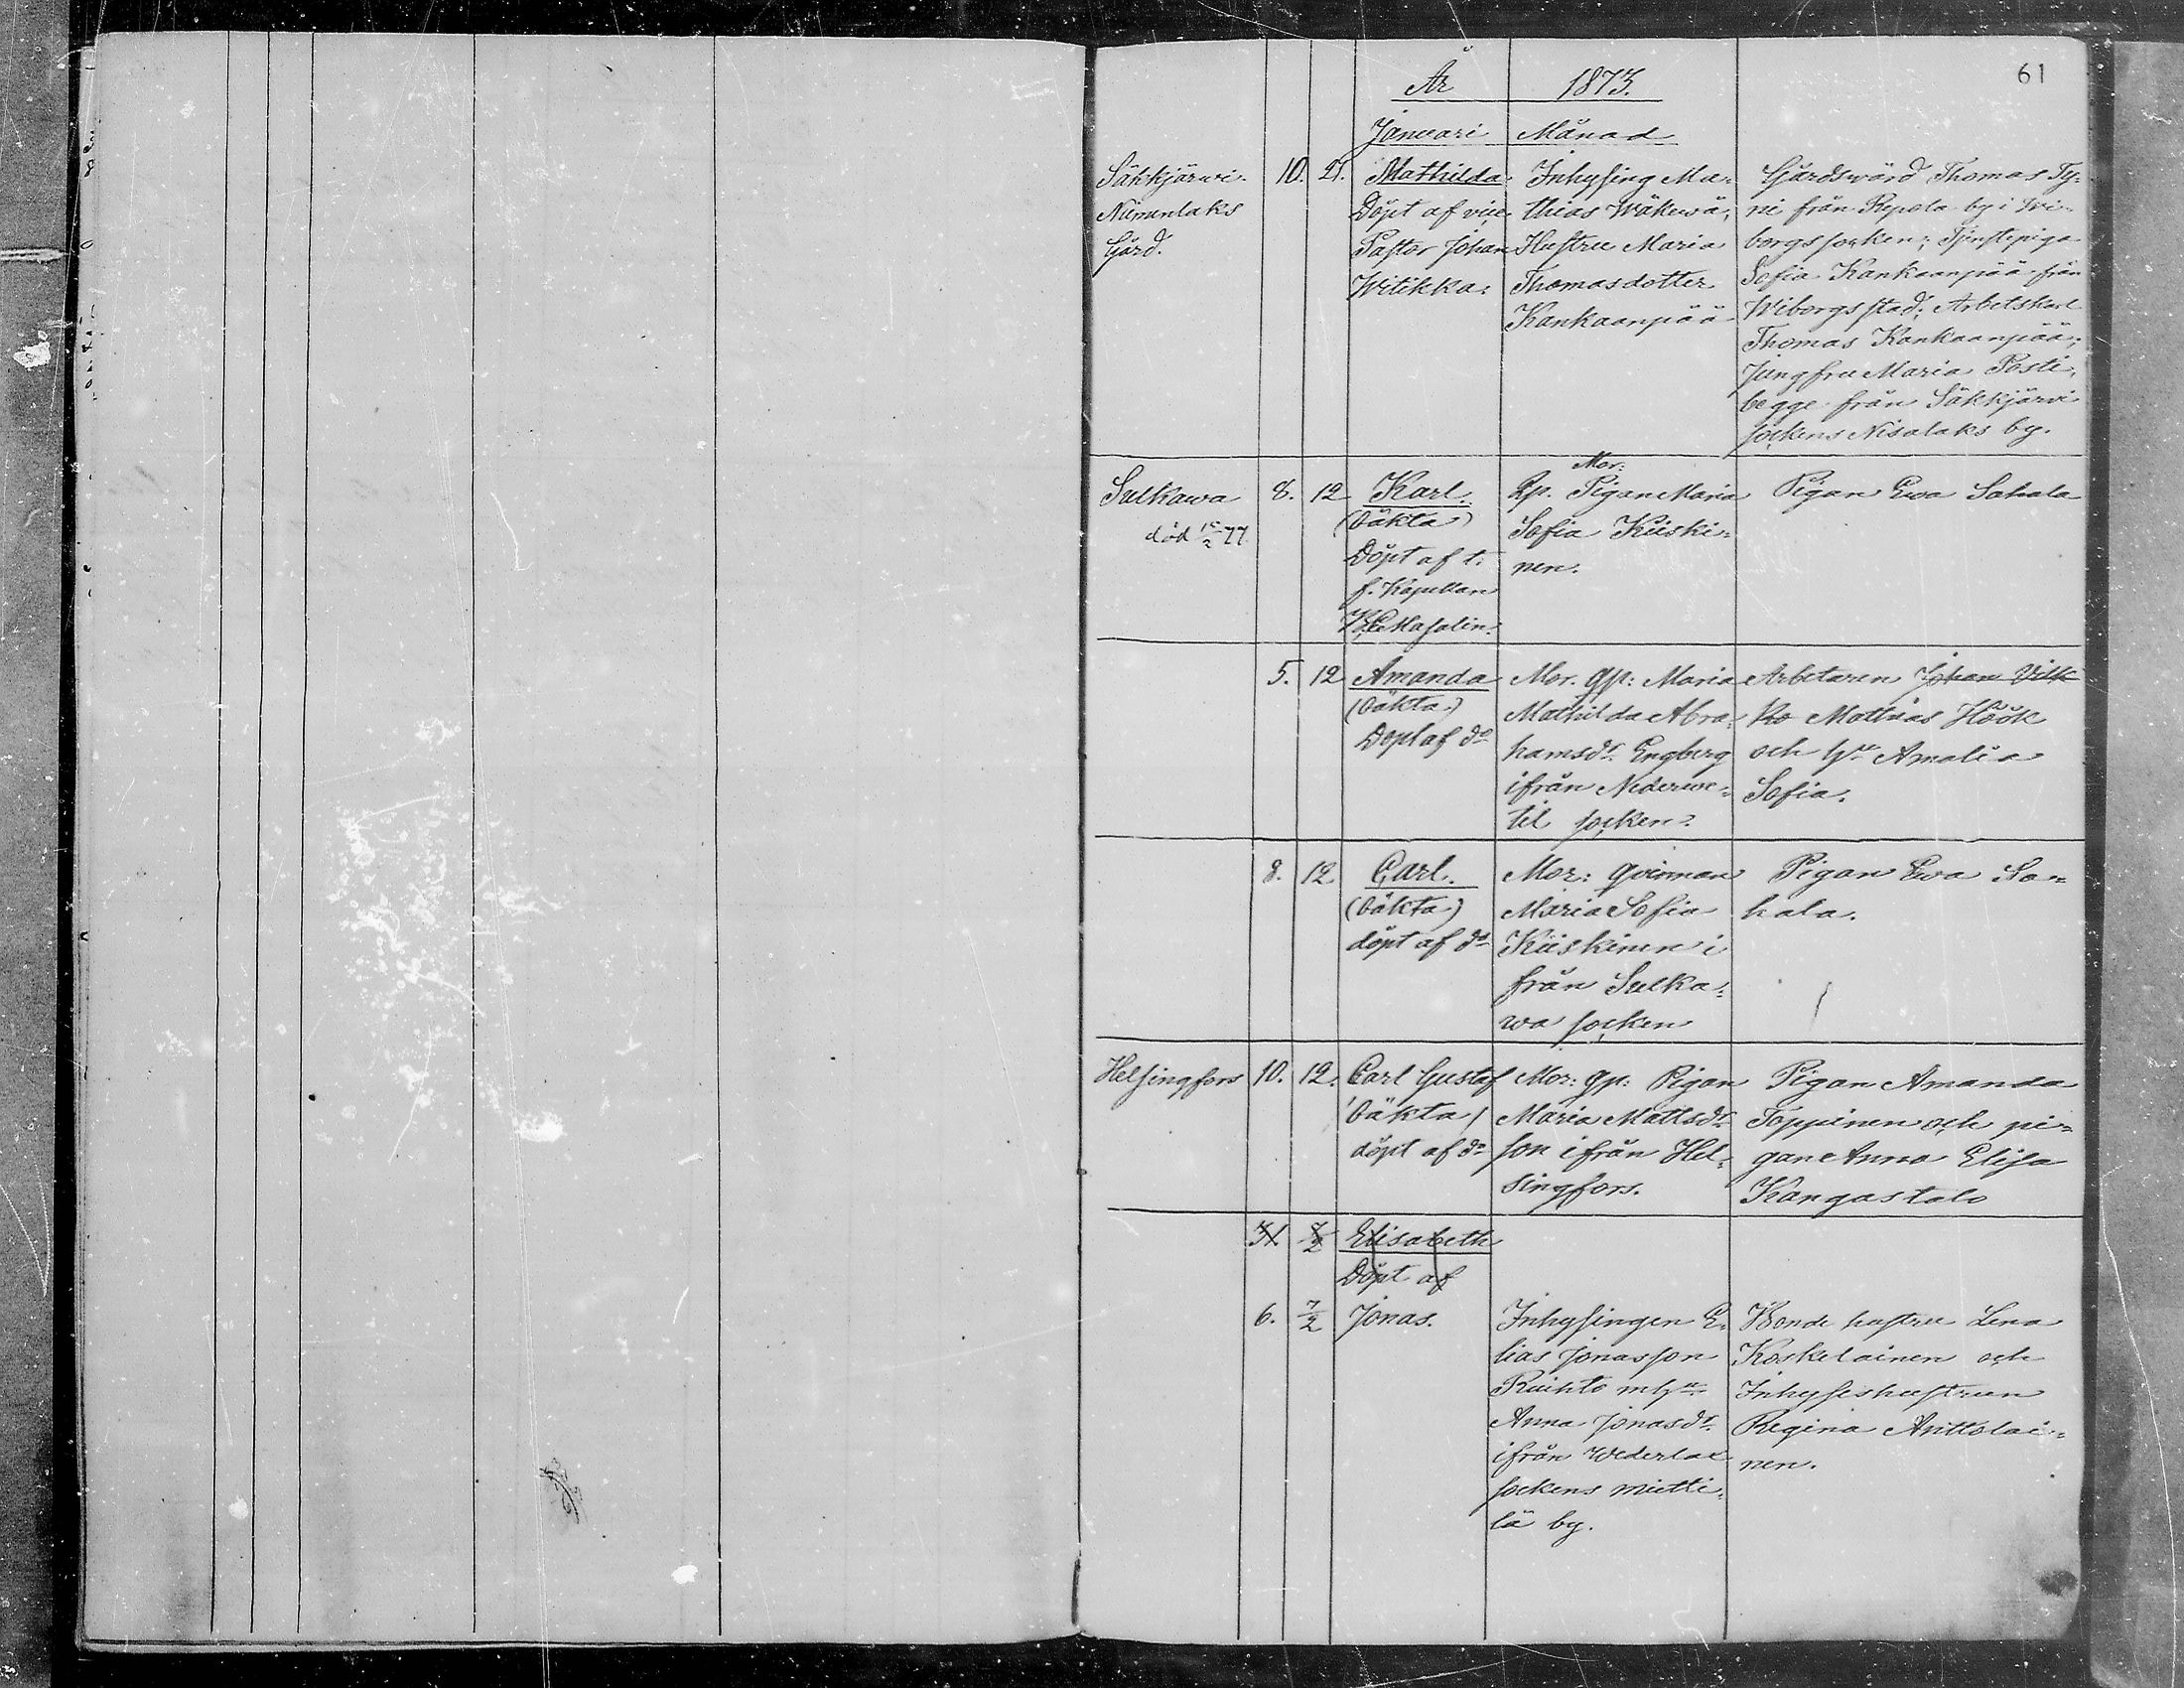 61
År 1873.
Januari Månad
Säkkjärvi
Nümenlaks
Gård.
10. 21.
Mathilda
Döpt af vice
Pastor Johan
Witikka.
Inhysing Ma-
thias Wäkewä,
Hustru Maria
Thomasdotter
Kankaanpää
Gårdswärd Thomas Ty-
ni från Repola by i Wi-
borgs socken; Tjenstepiga
Sofia Kankaanpää från
Wiborgs stad; Arbetskarl
Thomas Kankaanpää;
Jungfru Maria Posti,
begge från Säkkjärvi
sockens Nisalaks by.
Sulkawa
död 15/2 77
8. 12
Karl.
(oäkta)
Döpt af t.
f. Kapellan
Hasalin.
Mor:
Qp. Pigan Maria
Sofia Kiiski-
nen.
Pigan Ewa Sahala
5. 12
Amanda
(oäkta)
Döpt af do
Mor. qp: Maria
Mathilda Abra-
hamsdr. Engberg
ifrån Nederve-
til socken.
Arbetaren Johan Vilk
ko Mathias Höök
och hu Amalia
Sofia.
8. 12
Carl.
(oäkta)
döpt af do
Mor: qvinnan
Maria Sofia
Kiiskinen i
från Sulka-
wa socken
Pigan Ewa Sa-
hala.
Helsingfors
10. 12.
Carl Gustaf
oäkta/
döpt af do
Mor: qp: Pigan
Maria Mattsdr.
son ifrån Hel-
singfors.
Pigan Amanda
Toppinen och pi-
gan Anna Elisa
Kangastalo
31. 8/2
Elisabeth
Döpt af
6. 7/2
Jonas.
Inhysingen E-
lias Jonasson
Ruihto m hu
Anna Jonasdr.
ifrån Wederlax
sockens mietti-
lä by.
Bonde hustru Lena
Koskelainen och
Inhyseshustrun
Regina Anttolai-
nen.